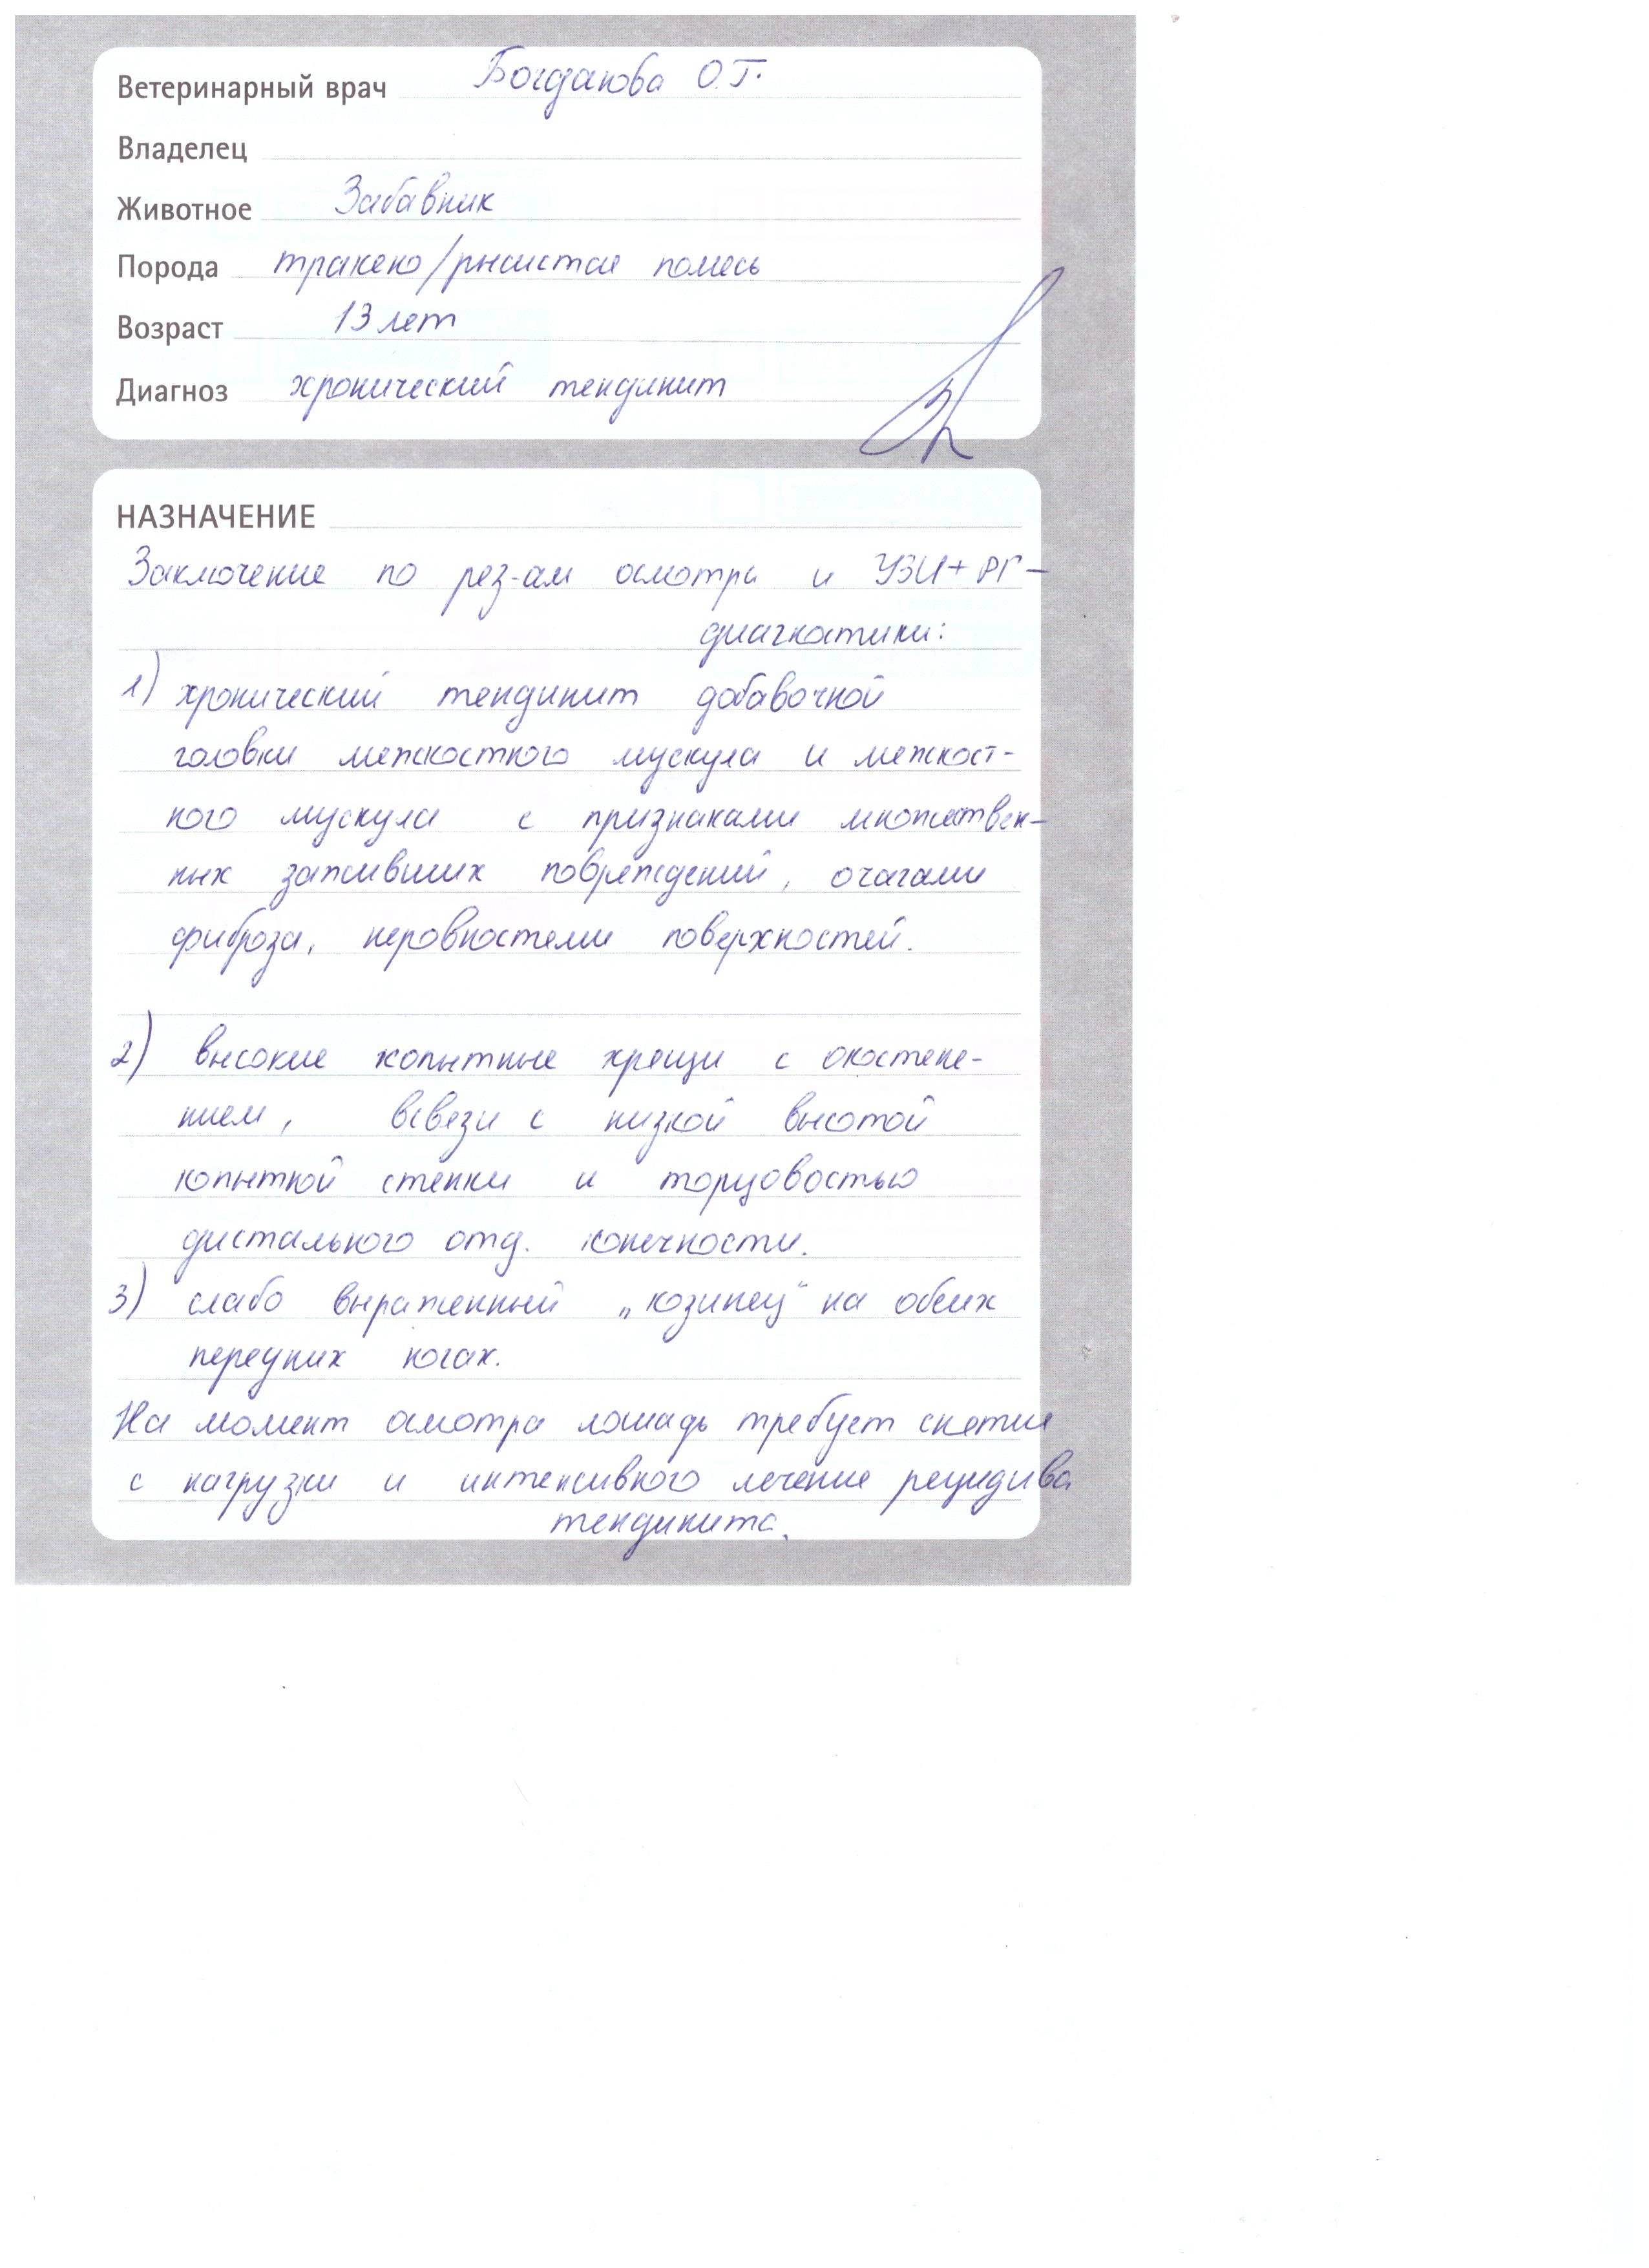 Ветеринарный врач Богданова О.Г.
Владелец
Животное Забавник
Порода тракено/рысистая помесь
Возраст 13 лет
Диагноз хронический тендинит
НАЗНАЧЕНИЕ
Заключение по рез-ам осмотра и УЗИ+РГ-
диагностики:
1) хронический тендинит добавочной
головки межкостного мускула и межкост-
ного мускула с признаками множествен-
ных заживших повреждений, очагами
фиброза, неровностями поверхностей.
2) высокие копытные хрящи с окостене-
нием, всвязи с низкой высотой
копытной стенки и торцовостью
дистального отд. конечности.
3) слабо выраженный „козинец" на обеих
передних ногах.
На момент осмотра лошадь требует снятия
с нагрузки и интенсивного лечение рецидива
тендинита.